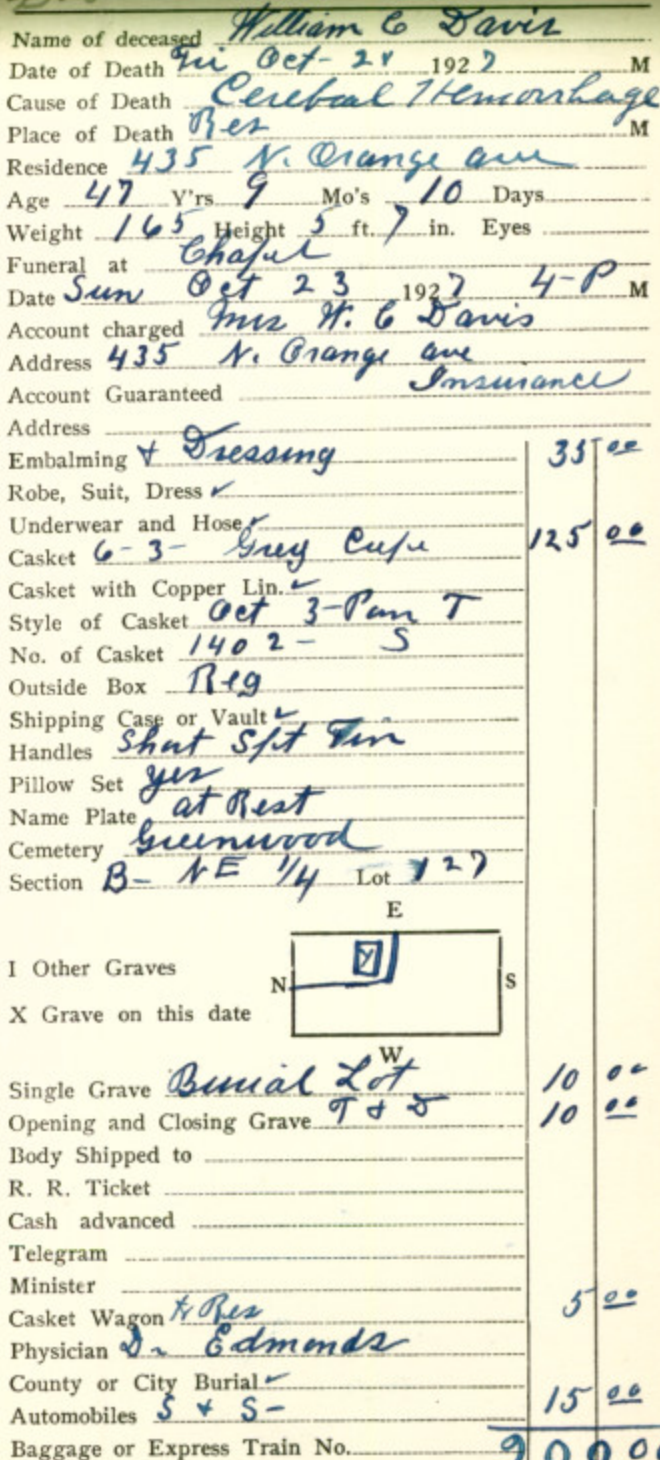 Name of deceased William C Davis
Date of Death Fri Oct- 21 1927 M
Cause of Death Cerebral Hemorrhage
Place of Death Res M
Residence 435 N. Orange ave
Age 47 Y'rs 9 Mo's 10 Days
Weight 165 Height 5 ft. 7 in. Eyes
Funeral at Chapel
Date Sun Oct 23 1927 4-P M
Account charged Mrs W. C Davis
Address 435 N. Orange ave
Account Guaranteed Insurance
Address
Embalming & Dressing 35 00
Robe, Suit, Dress ✓
Underwear and Hose ✓
Casket 6-3- Grey Crepe 125 00
Casket with Copper Lin. ✓
Style of Casket Oct 3-Pan T
No. of Casket 1402- S
Outside Box Reg
Shipping Case or Vault ✓
Handles Short
Pillow Set yes
Name Plate at Rest
Cemetery Greenwood
Section B- NE 1/4 Lot 127
E
I Other Graves
N S
X Grave on this date
W
Single Grave Burial Lot 10 00
Opening and Closing Grave T & D 10 00
Body Shipped to
R. R. Ticket
Cash advanced
Telegram
Minister
Casket Wagon to Res 5 00
Physician Dr Edmonds
County or City Burial ✓
Automobiles S & S- 15 00
Baggage or Express Train No.